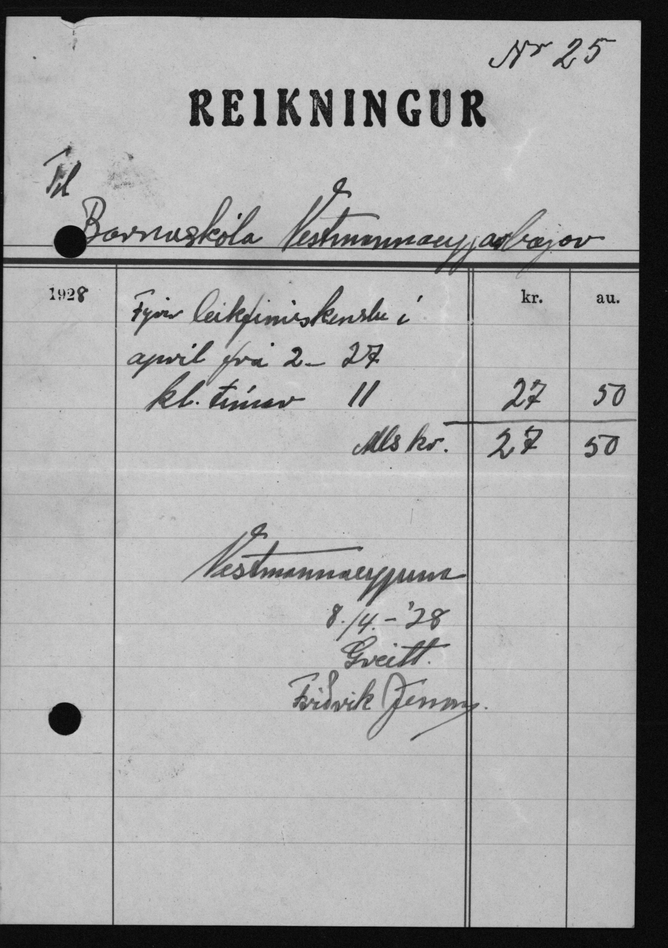 Nr 25
REIKNINGUR
Til
Barnaskóla Vestmannaeyjarbæjar
1928
kr.
au.
Fyrir leikfimiskenslu í
apríl frá 2 - 27
kl. tímar 11
27
50
Alls kr.
27
50
Vestmannaeyjum
8./4. - '28
Greitt.
Friðrik Jesson.